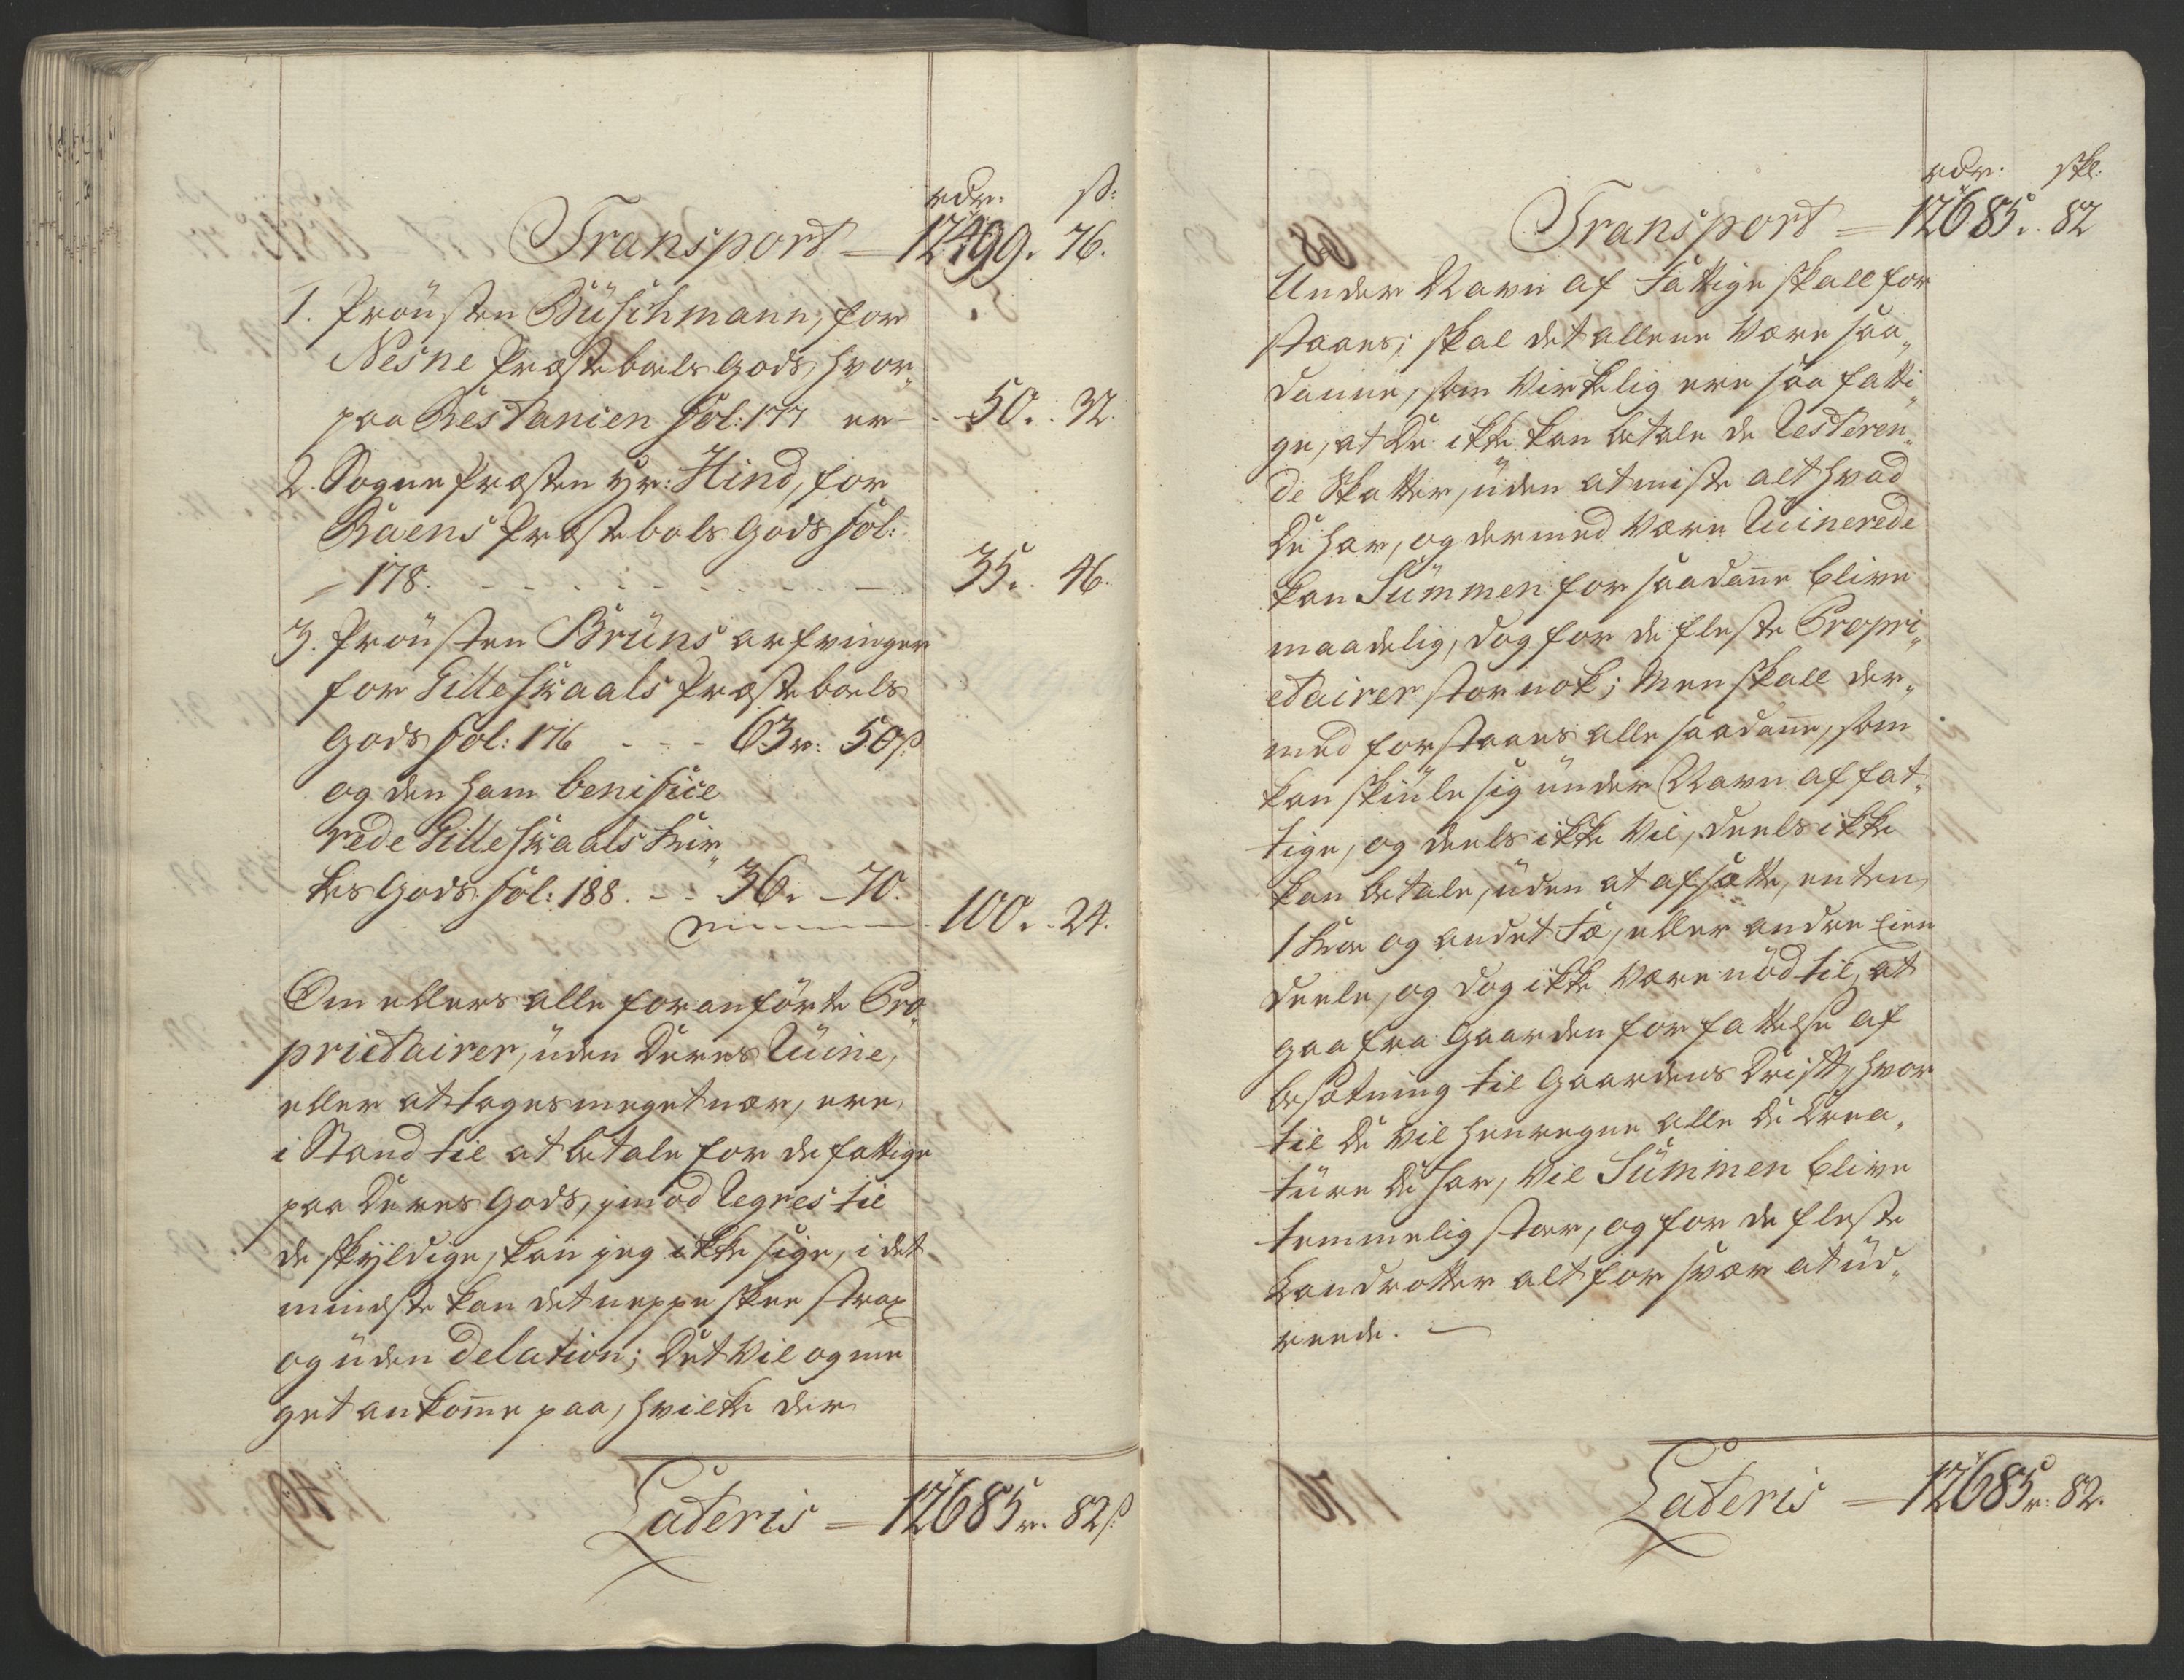 rdr. ß:
Transport = 12499. 76.
1. Prousten Büschmann, for
Nesne Præstebols Gods, hvor„
paa Restancien fol: 177 er - 50. . 32.
2. Sogne Præsten Hr: Hind, for
Raens Præstebols Gods fol:
178. - - - - - - - - - 35. . 46.
3. Prousten Brüns arfvinger
for Gilleskaals Præstebols
Gods fol: 176 - - - 63 r: 50 ß
og den ham benificie
rede Gilleskaals Kir„
kes Gods fol: 188. - - 36. - 70.
100. . 24.
Om ellers alle foranførte Pro„
prietairer, uden Deres Ruine,
eller at tages meget nær, ere
i Stand til at betale for de fattige
paa Deres Gods, imod Regres til
de skyldige, kan jeg ikke sige, i det
mindste kan det neppe skee strax
og uden Delation; Det vil og me
get ankom̄e paa, hvilke der
Lateris = 12685 r. 82 ß
rdr: skl:
Transport = 12685. . 82
Under Navn af Fattige skall for
staaes; skal det allene være saa„
danne, som virkelig ere saa fatti„
ge, at De ikke kan betale de Resteren„
de Skatter, uden at miste alt hvad
De har, og dermed være Ruinerede
kan Summen for saadan̄e blive
maadelig, dog for de fleste Propri„
etairer stor nok; Men skall der„
med forstaaes alle saadan̄e, som
kan skiule sig under Navn af fat„
tige, og deels ikke vil, deels ikke
kan betale, uden at afsætte, enten
1 Koe og andet Fæ, eller andre Eien
deele, og dog ikke være nød til, at
gaa fra Gaarden for fattelse af
besætning til Gaardens Drift, hvor
til De vil henregne alle de Crea„
ture De har, vil Summen blive
temmelig stor, og for de fleste
Landrotter alt for svær at ud„
reede.
Lateris = 12685 r: 82.